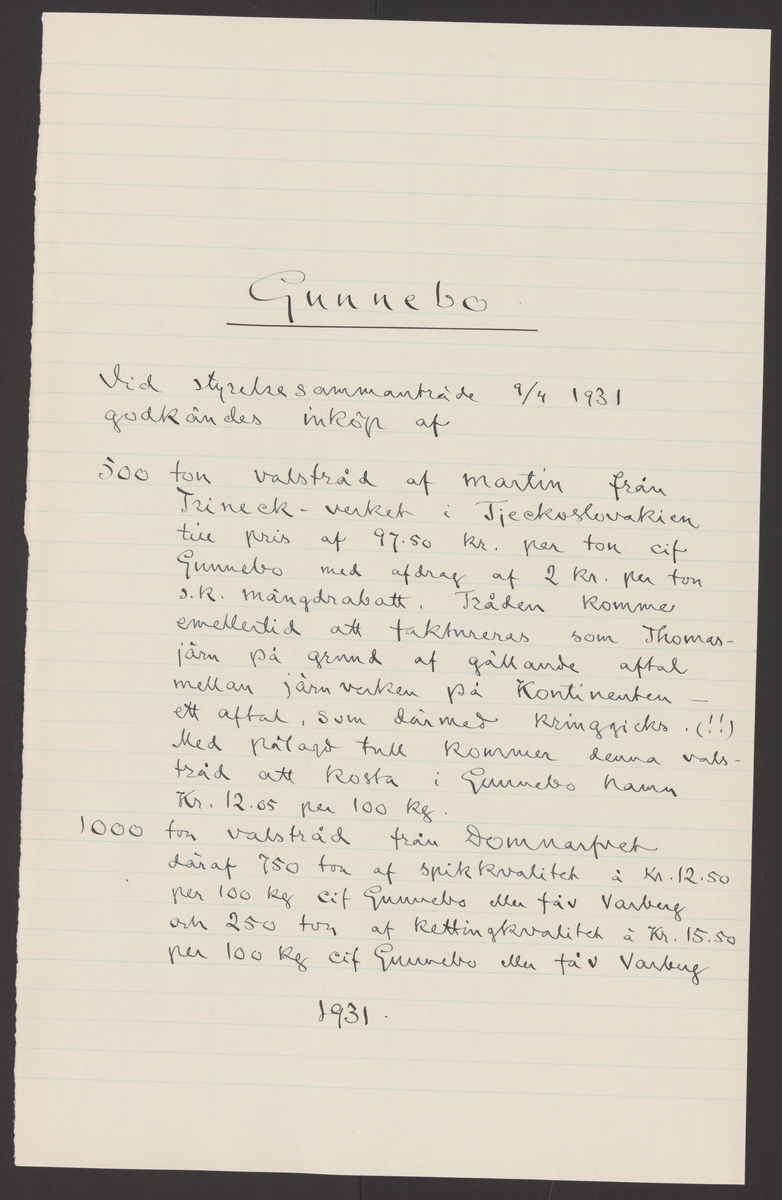 Gunnebo
Vid styrelsesammanträde 9/4 1931
godkändes inköp af
500 ton valstråd af martin från
Trineck-verket i Tjeckoslovakien
till pris af 97.50 kr. per ton cif
Gunnebo med afdrag af 2 kr. per ton
s.k. mängdrabatt. Tråden kommer
emellertid att faktureras som Thomas-
järn på grund af gällande aftal
mellan järnverken på Kontinenten —
ett aftal, som därmed kringgicks. (!!)
Med pålagd tull kommer denna vals-
tråd att kosta i Gunnebo hamn
Kr. 12.05 per 100 kg.
1000 ton valstråd från Domnarfvet
däraf 750 ton af spikkvalitet à Kr. 12.50
per 100 kg cif Gunnebo eller fåv Varberg
och 250 ton af kettingkvalitet à Kr. 15.50
per 100 kg cif Gunnebo eller fåv Varberg
1931.